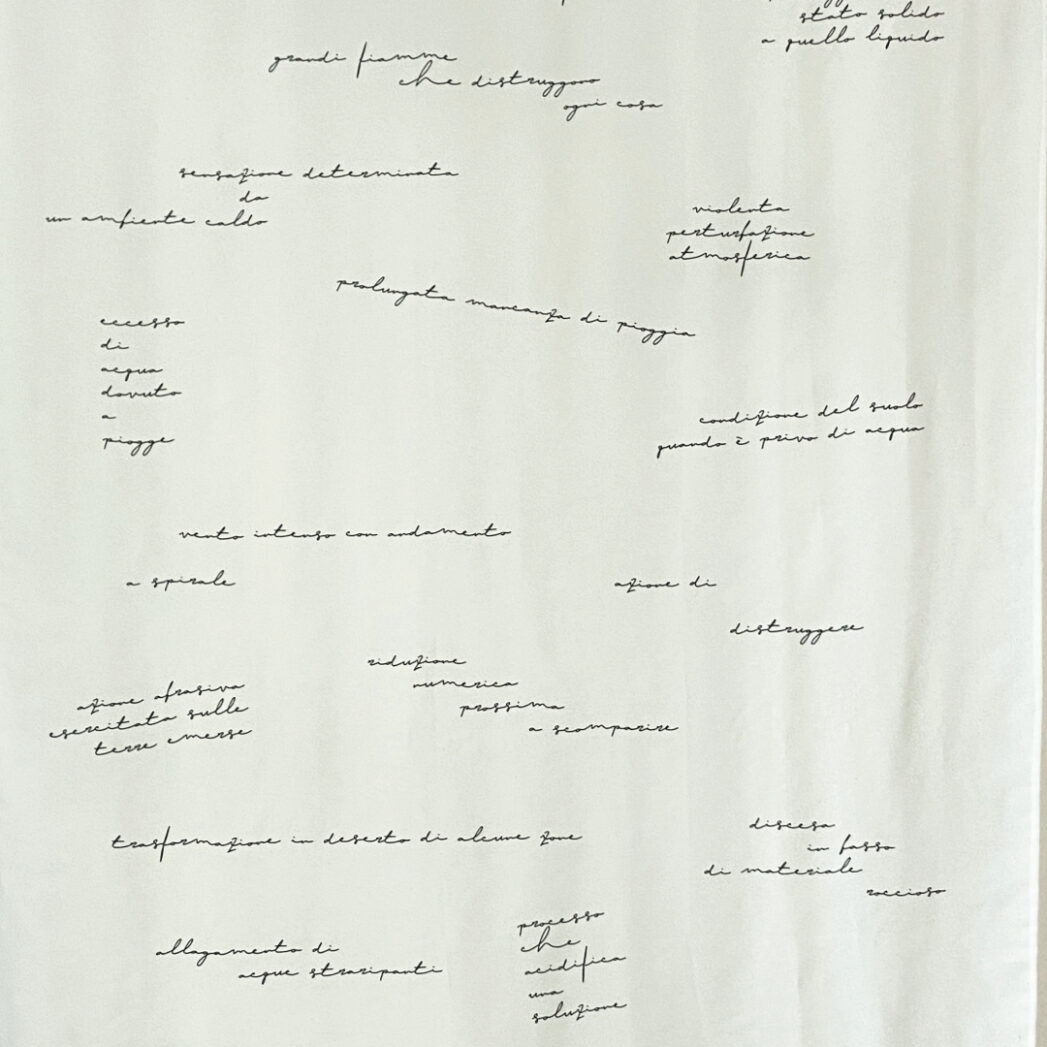 stato solido
a quello liquido
grandi fiamme
che distruggono
ogni cosa
sensazione determinata
da
un ambiente caldo
violenta
perturbazione
atmosferica
prolungata mancanza di pioggia
eccesso
di
acqua
dovuto
a
piogge
condizione del suolo
quando è privo di acqua
vento intenso con andamento
a spirale
azione di
distruggere
riduzione
numerica
prossima
a scomparire
azione abrasiva
esercitata sulle
terre emerse
trasformazione in deserto di alcune zone
discesa
in basso
di materiale
roccioso
allagamento di
acque straripanti
processo
che
acidifica
una
soluzione